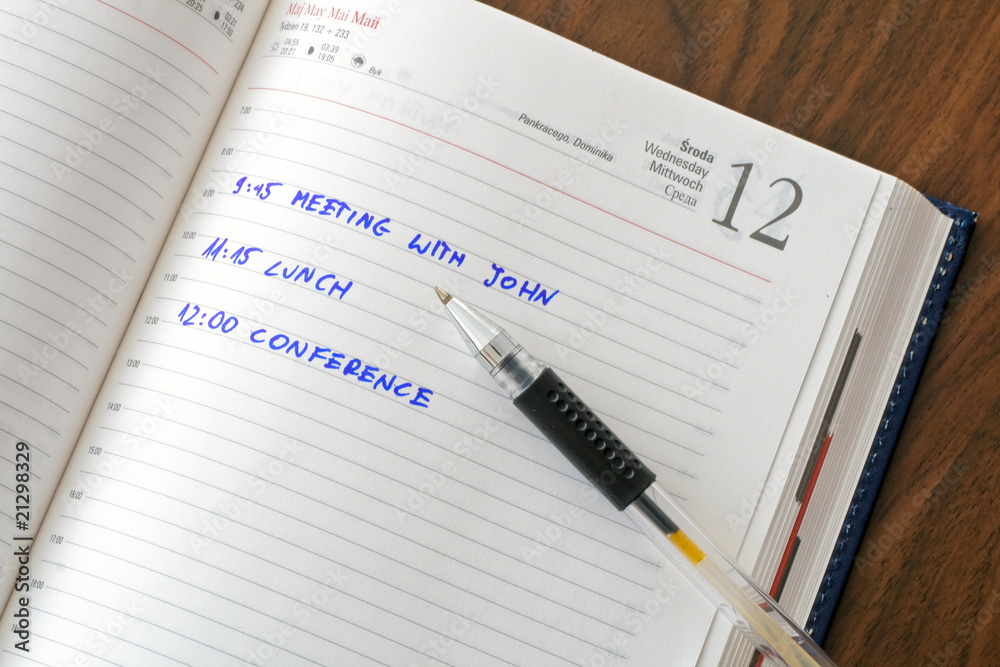 20:25
03:21
17:50
Maj May Mai Май
Tydzień 19, 132 ÷ 233
04:55
20:27
03:39
19:05
Byk
Pankracego, Dominika
Środa
Wednesday
Mittwoch
Среда
12
7:00
8:00
9:00
9:45 MEETING WITH JOHN
10:00
11:15 LUNCH
11:00
12:00
12:00 CONFERENCE
13:00
14:00
15:00
16:00
17:00
18:00
Adobe Stock | #21298329